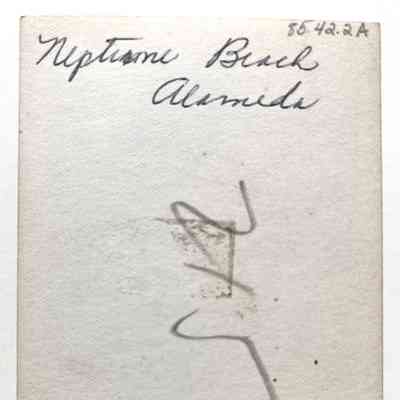 85.42.2A
Neptune Beach
Alameda